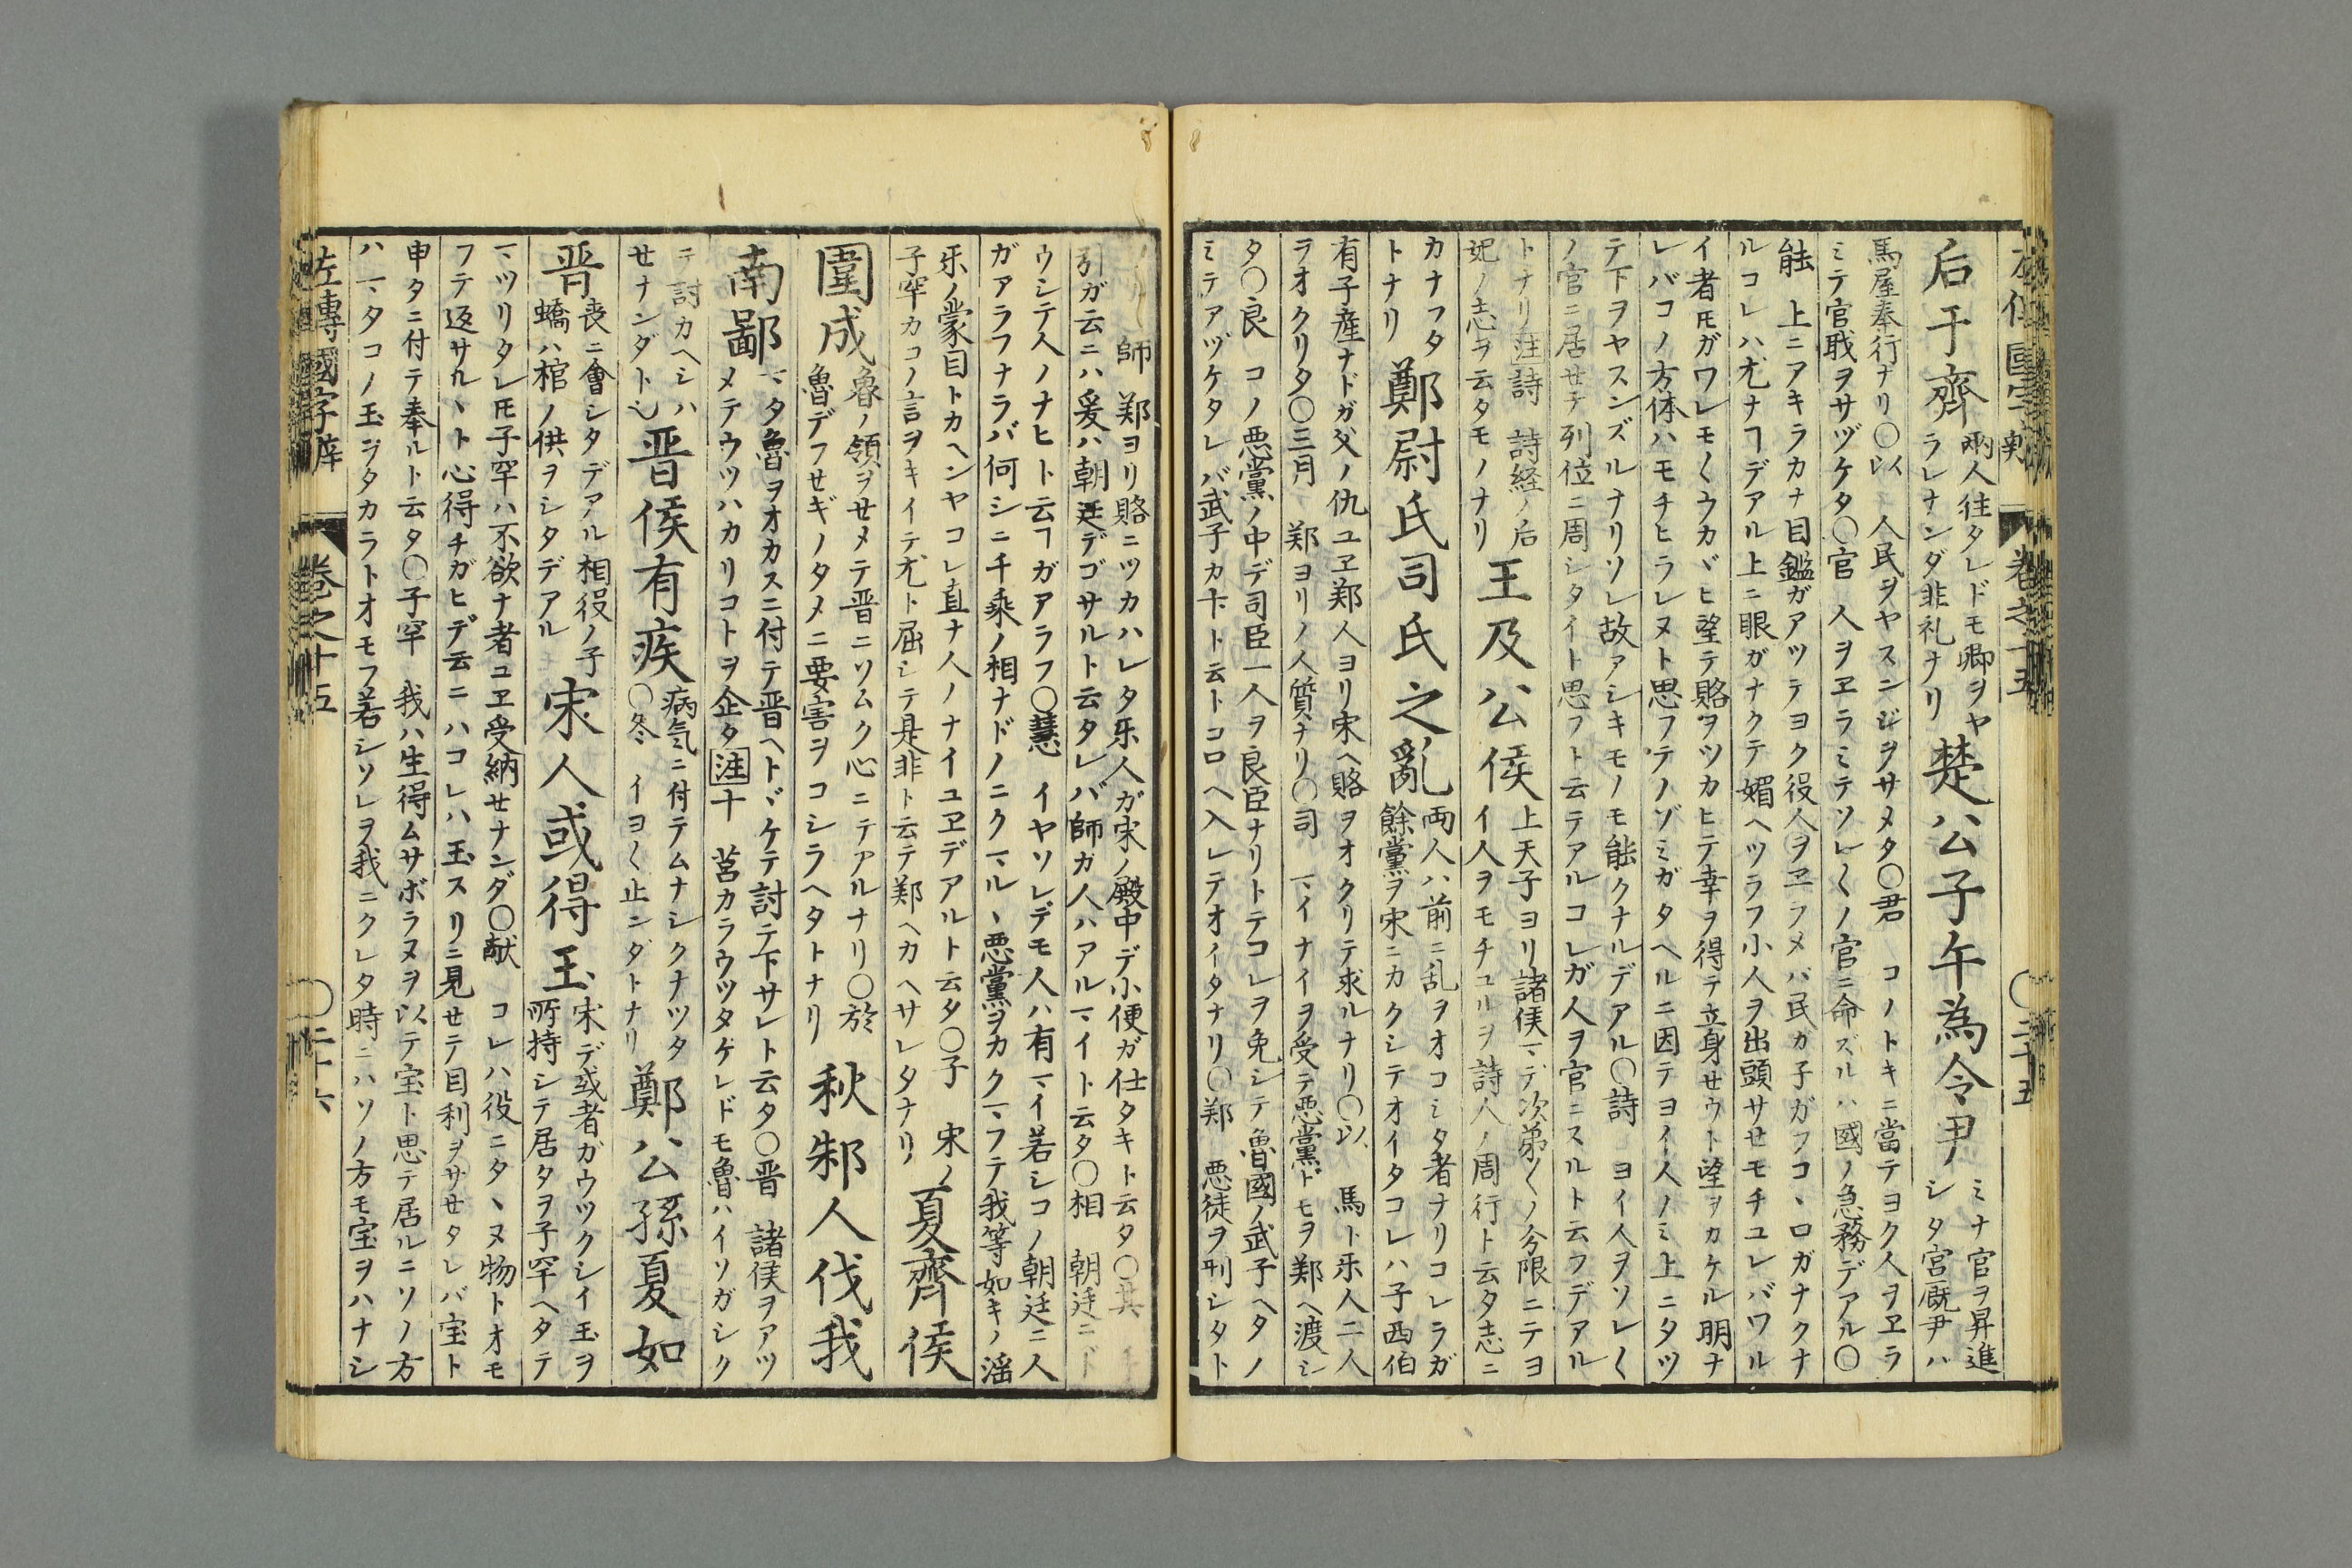 后于齊
兩人往タレドモ卿ヲヤ
ラレナンダ非礼ナリ
楚公子午為令尹
ミナ官ヲ昇進
シタ宮厩尹ハ
馬屋奉行ナリ〇以 人民ヲヤスンジヲサメタ〇君 コノトキニ當テヨク人ヲヱラ
ミテ官職ヲサヅケタ〇官 人ヲヱラミテソレ〱ノ官ニ命ズルハ國ノ急務デアル〇
能 上ニアキラカナ目鑑ガアツテヨク役人ヲヱラメバ民カ子ガフコヽロガナクナ
ルコレハ尤ナヿデアル上ニ眼ガナクテ媚ヘツラフ小人ヲ出頭サセモチユレバワル
イ者𪜈ガワレモ〱ウカヾヒ望テ賂ヲツカヒテ幸ヲ得テ立身セウト望ヲカケル明ナ
レバコノ方体ハモチヒラレヌト思フテノゾミガタヘルニ因テヨイ人ノミ上ニタツ
テ下ヲヤスンズルナリソレ故アシキモノモ能クナルデアル〇詩 ヨイ人ヲソレ〱
ノ官ニ居セテ列位ニ周シタイト思フト云テアルコレガ人ヲ官ニスルト云フデアル
トナリ注詩 詩経ノ后
妃ノ志ヲ云タモノナリ
王及公侯
上天子ヨリ諸侯マデ次第〱ノ分限ニテヨ
イ人ヲモチユルヲ詩人ノ周行ト云タ志ニ
カナフタ
トナリ
鄭尉氏司氏之亂
両人ハ前ニ乱ヲオコシタ者ナリコレラガ
餘黨ヲ宋ニカクシテオイタコレハ子西伯
有子産ナドガ父ノ仇ユヱ鄭人ヨリ宋ヘ賂ヲオクリテ求ルナリ〇以 馬ト乐人二人
ヲオクリタ〇三月 鄭ヨリノ人質ナリ〇司 マイナイヲ受テ悪黨ドモヲ鄭ヘ渡シ
タ〇良 コノ悪黨ノ中デ司臣一人ヲ良臣ナリトテコレヲ免シテ魯國ノ武子ヘタノ
ミテアヅケタレバ武子カ卞ト云トコロヘ入レテオイタナリ〇鄭 悪徒ヲ刑シタト
師 鄭ヨリ賂ニツカハレタ乐人ガ宋ノ殿中デ小便ガ仕タキト云タ〇其
引ガ云ニハ爰ハ朝廷デゴサルト云タレバ師ガ人ハアルマイト云タ〇相 朝廷ニド
ウシテ人ノナヒト云ヿガアラフ〇慧 イヤソレデモ人ハ有マイ若シコノ朝廷ニ人
ガアラフナラバ何シニ千乘ノ相ナドノニクマルヽ悪黨ヲカクマフテ我等如キノ滛
乐ノ蒙目トカヘンヤコレ直ナ人ノナイユヱデアルト云タ〇子 宋ノ
子罕カコノ言ヲキイテ尤ト屈シテ是非ト云テ鄭ヘカヘサレタナリ
夏齊侯
圍成
魯ノ領ヲセメテ晋ニソムク心ニテアルナリ〇於
魯デフセギノタメニ要害ヲコシラヘタトナリ
秋邾人伐我
南鄙
マタ魯ヲオカスニ付テ晋ヘトヾケテ討テ下サレト云タ〇晋 諸侯ヲアツ
メテウツハカリコトヲ企タ注十 莒カラウツタケレドモ魯ハイソガシク
テ討カヘシハ
セナンダト乄
晋侯有疾
病気ニ付テムナシクナツタ
〇冬 イヨ〱止ンダトナリ
鄭公孫夏如
晋
喪ニ會シタデアル相役ノ子
蟜ハ棺ノ供ヲシタデアル
宋人或得玉
宋デ或者ガウツクシイ玉ヲ
所持シテ居タヲ子罕ヘタテ
マツリタレ𪜈子罕ハ不欲ナ者ユヱ受納セナンダ〇献 コレハ役ニタヽヌ物トオモ
フテ返サルヽト心得チガヒデ云ニハコレハ玉スリニ見セテ目利ヲサセタレバ宝ト
申タニ付テ奉ルト云タ〇子罕 我ハ生得ムサボラヌヲ以テ宝ト思テ居ルニソノ方
ハマタコノ玉ヲタカラトオモフ若シソレヲ我ニクレタ時ニハソノ方モ宝ヲハナシ
左傳國字辯 卷之十五 〇二十六